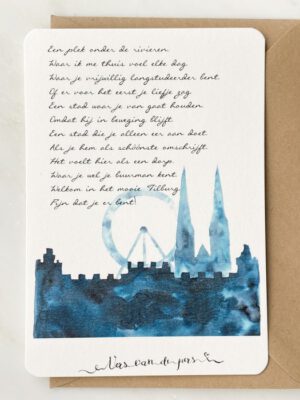 Een plek onder de rivieren.
Waar ik me thuis voel elke dag.
Waar je vrijwillig langstudeerder bent.
Of er voor het eerst je liefje zag.
Een stad waar je van gaat houden.
Omdat hij in beweging blijft.
Een stad die je alleen eer aan doet.
Als je hem als schôônste omschrijft.
Het voelt hier als een dorp.
Waar je wel je buurman kent.
Welkom in het mooie Tilburg.
Fijn dat je er bent!
Vers van de pers